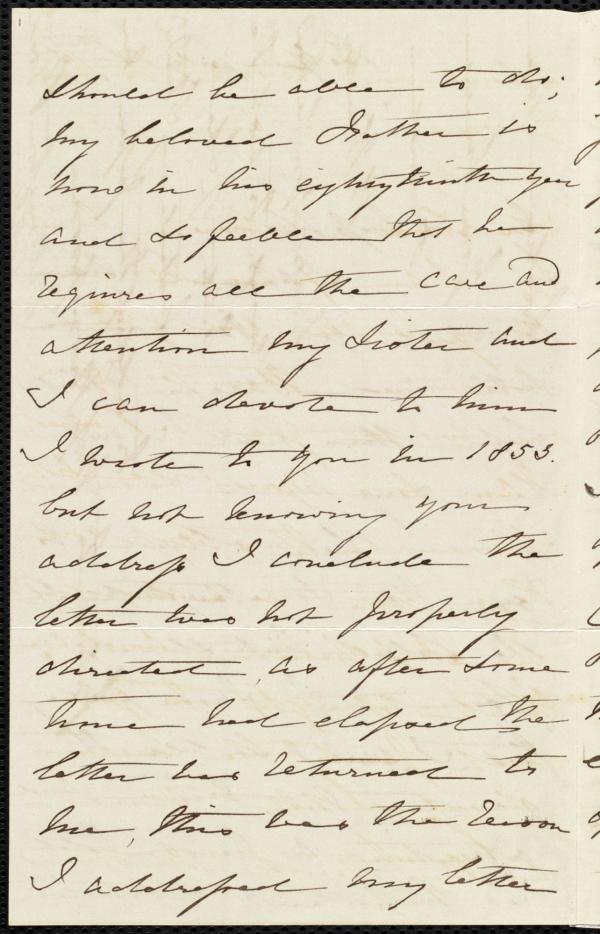 should be able to do;
my beloved Father is
now in his eighty ninth year
and so feeble that he
requires all the care and
attention my Sister and
I can devote to him
I wrote to you in 1853.
but not knowing your
address I conclude the
letter was not properly
directed, as after some
time had elapsed the
letter was returned to
me, this was the reason
I addressed my letter